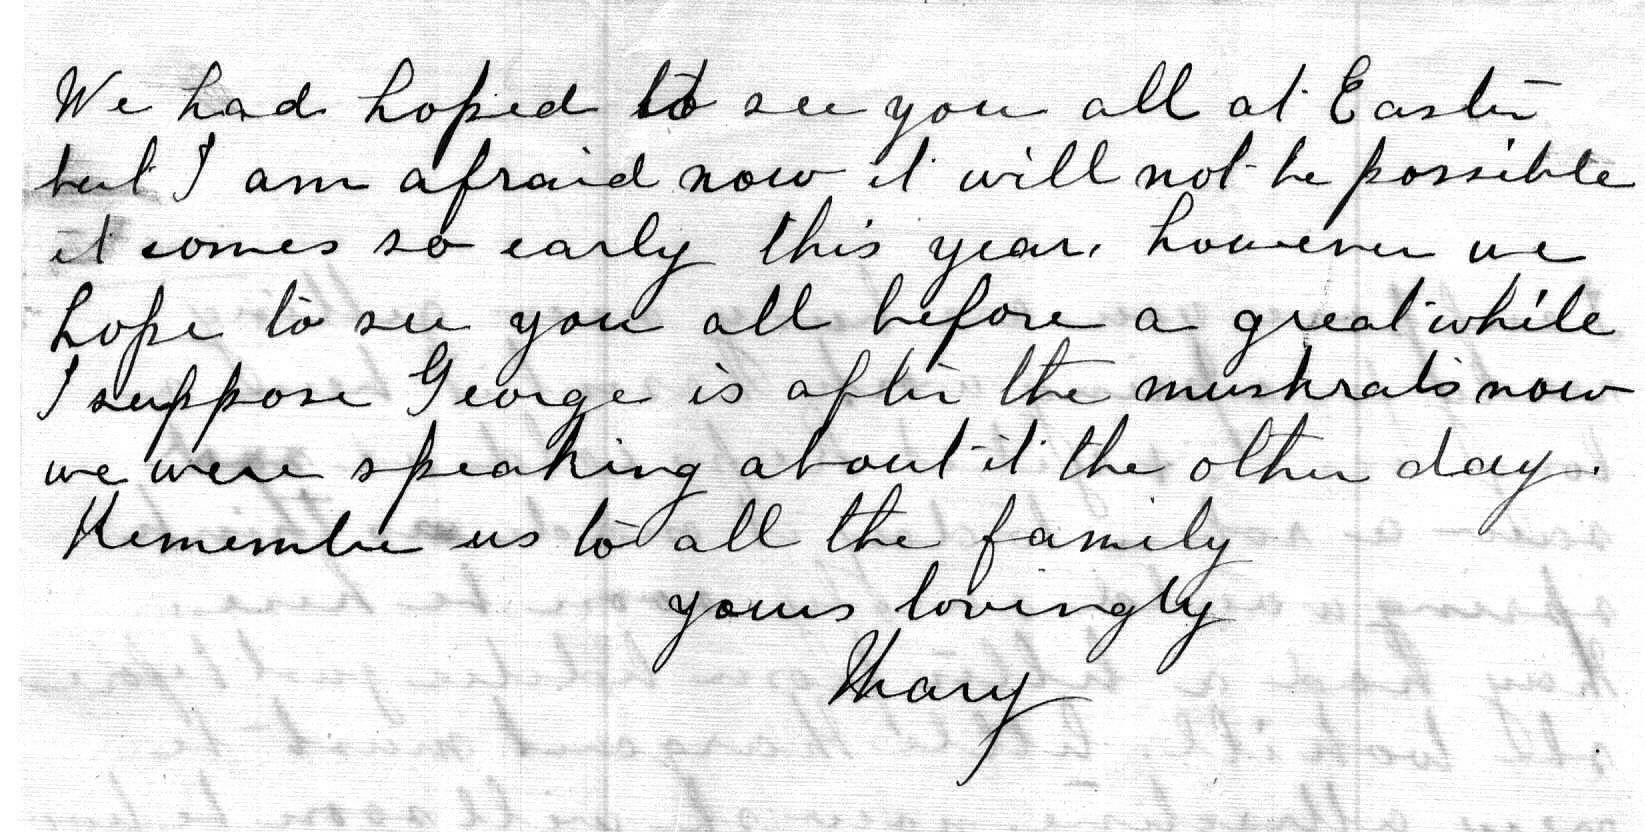 We had hoped to see you all at Easter
but I am afraid now it will not be possible
it comes so early this year. however we
hope to see you all before a great while
I suppose George is after the muskrats now
we were speaking about it the other day.
Remember us to all the family
yours lovingly
Mary